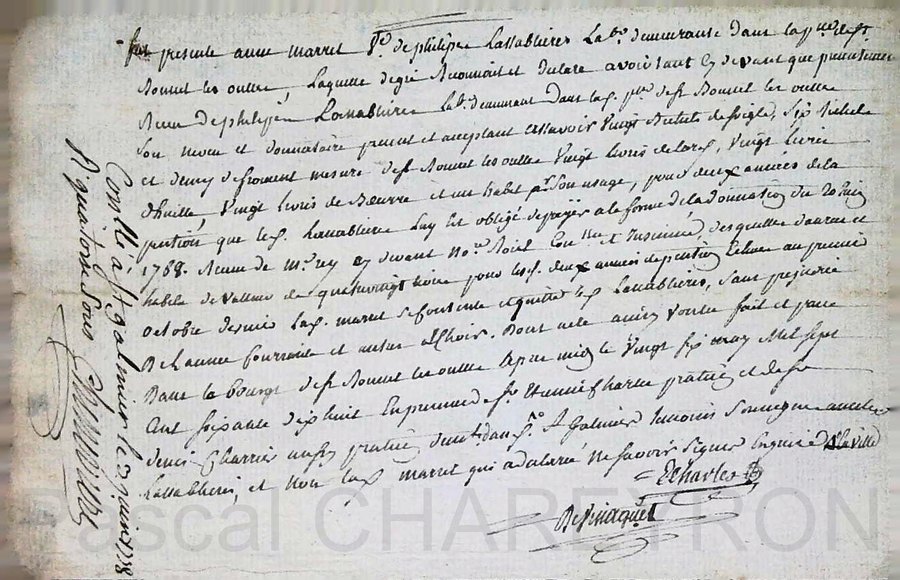 fut presente anne marret Ve. de philipe Lassablieres Labr. demeurante dans la psse de st.
Bonnet les oulles, Laquelle degré Reconnait et declare avoir tant cy devant que presentement
Receu de philipe Lassabliere Labr. demeurant dans lad. psse. de st Bonnet les oulles
son neveu et donnataire present et acceptant assavoir vingt Bichets de seigle, six Bichets
et demy de froment mesure de st Bonnet les oulles vingt livres de lard, vingt livres
d'huille, vingt livres de Beurre et un habit pr. son usage, pour deux années de la
pention que led. Lassabliere luy est obligé de payer a la forme de la donnation du 20 juin
1768. Receue de Mr. rey cy devant Nore. Roial Conllée. et Insinuée, desquelles denrées et
habits de valleur de quatrevingt livres pour lesd. deux années de pention Echues au premier
octobre dernier lad. marret se contente et quitte led. Lassablieres, sans prejudice
De l'année Courrante et autres Echoir. Dont acte
Dans le Bourg de st Bonnet les oulles apres midy le vingt six may Mil sept
Cent soixante dix huit En presence de sr. Etienne Charles praticien et de sr
denis Charles aussy praticien demt. dans st. Galmier temoins soussignés avec led.
Lassablieres, et Non lad. marret qui a declaré Ne savoir signer Enquise
DCharles
Conllé a St galmier le 2 juin 1778
R quatorze sous
Pascal CHAREYRON